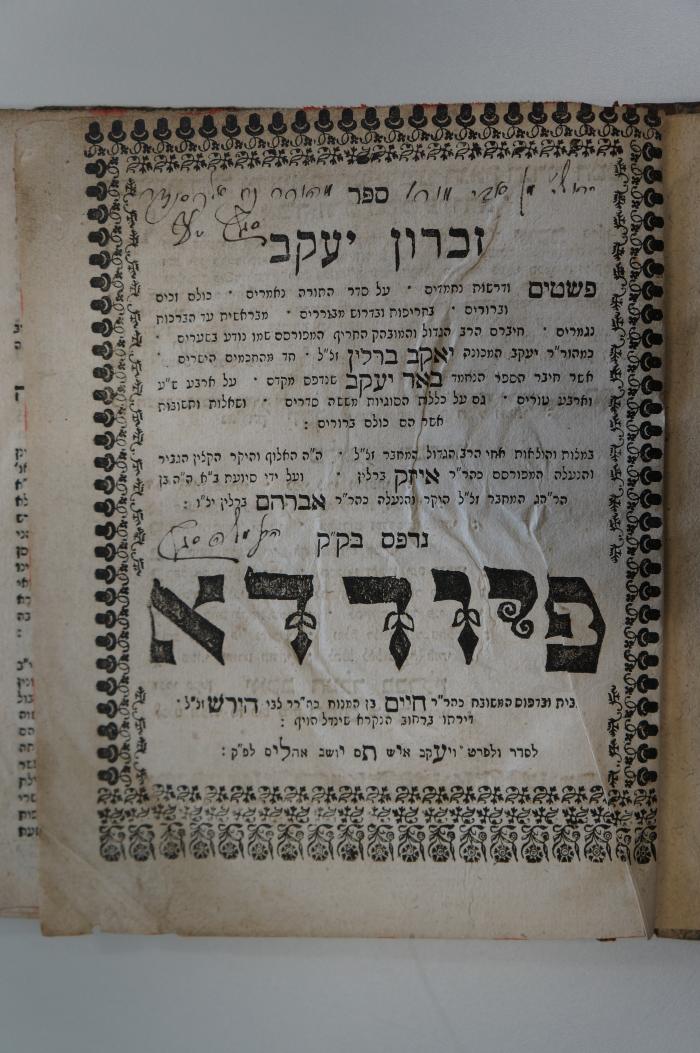 ספר
זכרון יעקב
פשטים ודרשות נחמדים • על סדר התורה נאמרים • כולם זכים
וברורים • בחריפות ובדרוש מבוררים • מבראשית עד הברכות
נגמרים • חיברם הרב הגדול והמובהק החריף המפורסם שמו נודע בשערים •
כמהור״ר יעקב המכונה יאקב ברלין זל״ל • חד מהחכמים הישרים •
אשר חיבר הספר הנחמד באר יעקב שנדפס מקדם • על ארבע ש״ע
וארבע טורים • גם על כללות הסוגיות מששה סדרים • ושאלות ותשובות
אשר הם כולם ברורים :
במלות והולאות אחי הרב הגדול המחבר זל״ל • ה״ה האלוף והיקר הקלין הגביר
והנעלה המפורסם כהר״ר אייזק ברלין • ועל ידי סיועת ב״א ה״ה בן
הר״הג המחבר זל״ל היקר והנעלה כהר״ר אברהם ברלין יל״ו :
נדפס בק״ק
פיורדא
בבית ובדפוס המשובח כהר״ר חיים בן המנוח כה״רר לבי הירש זל״ל •
דירתו ברחוב הנקרא שינדל הויף :
לסדר ולפרט ויעקב איש תם יושב אהלים לפ״ק :